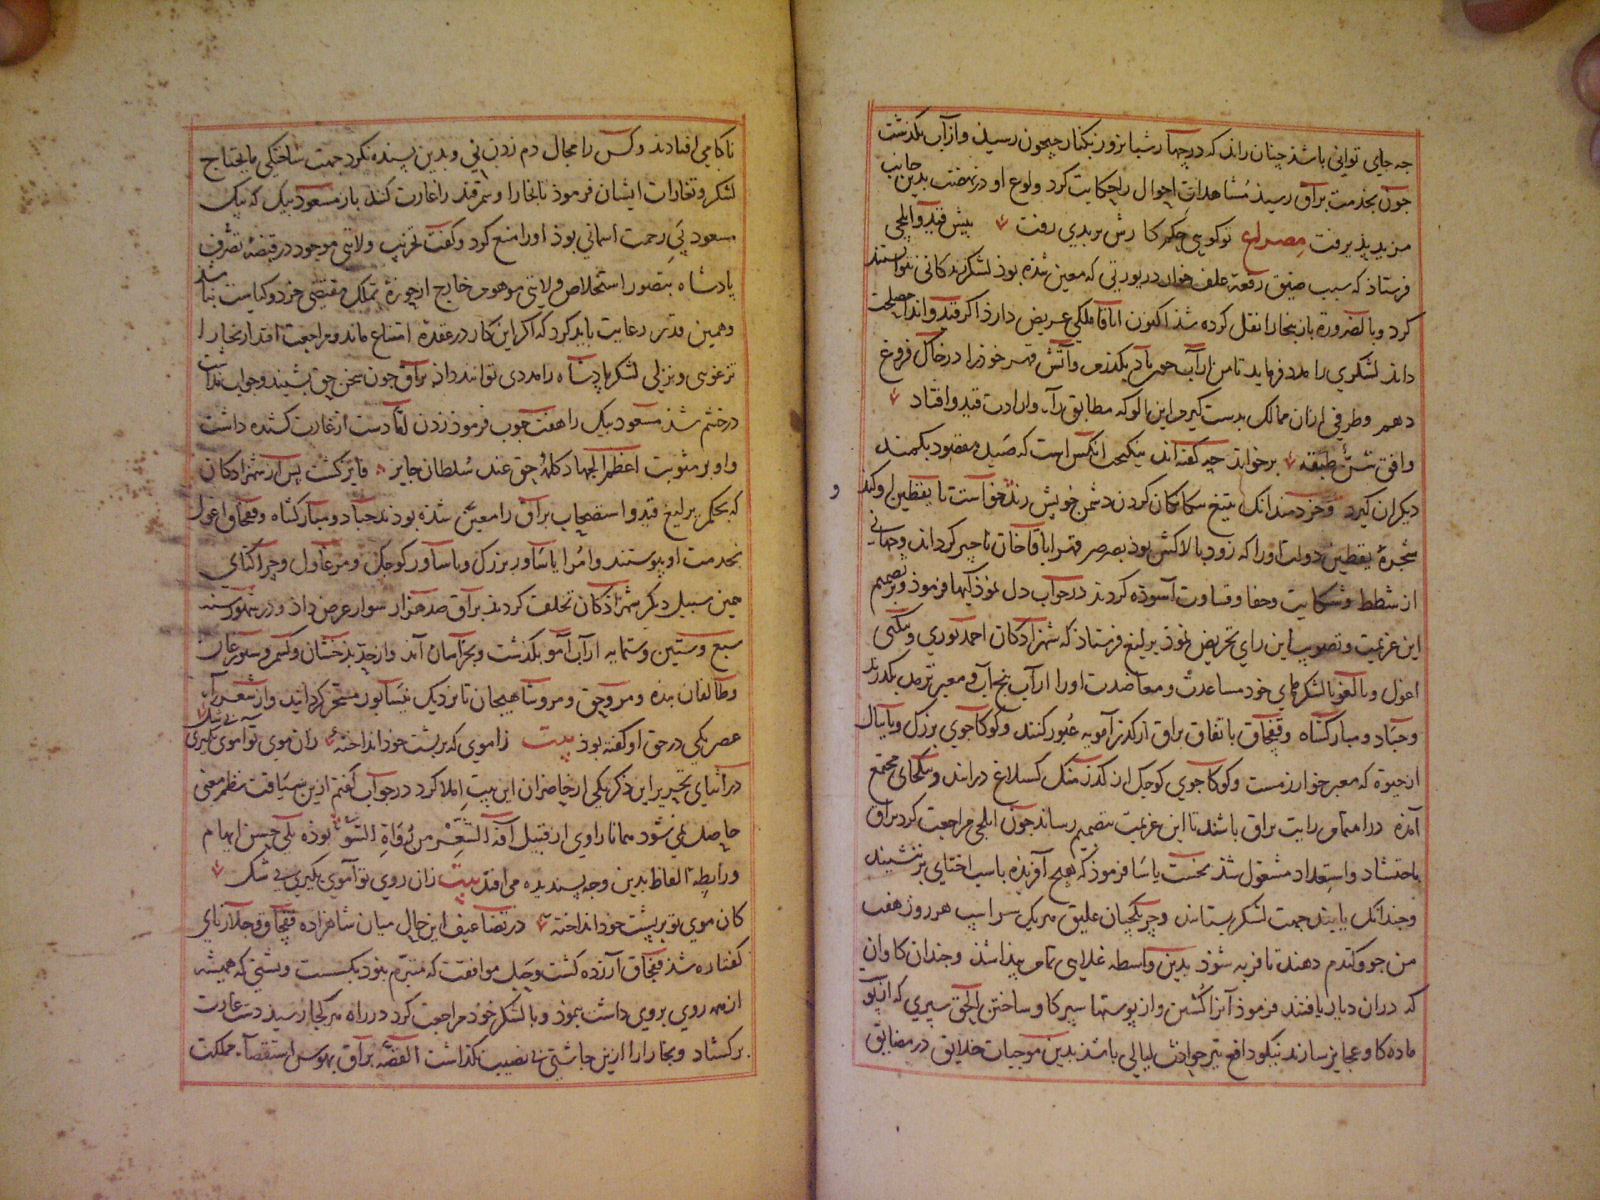 جه جای توانی باشذ چنان راند که در چهار شبانروز بکنار جیحون رسیذ و از آب بکذشت
جون بخذمت براق رسیذ مشاهدات احوال را حکایت کرد و لوع او در نهضت بدین جانب
مزید پذیرفت مصراع تو کویی جکر کا رش بر بدی رفت بیش قیدو ایلچی
فرستاذ که سبب ضیق رقعه علف خوار در یورتی که معین شذه بوذ لشکر زندکانی نتوانستند
کرد و بالضروره باز بخارا نقل کرده شذ اکنون اباقا ملکی عریض دارذ اکر قیدو اندا مصلحت
داند لشکری را مدد فرماید تا من از آب بکذرم و آتش قهر خوذ را در خاک فروغ
دهم و طرفی از ان ممالک بدست کیرم این الوکه مطابق رأی و ارادت قیدو افتاد
وافق شن طبقه برخواند چه کفته اند نیکبخت انکس است که صید مقصود بکمند
دیکران کیرد و خردمند انک بتیغ کردن دشمن خویش زند خواست تا یقطین او کند
شجره یقطین دولت او را که زود بالا کش بوذ بصرصر قهر اباقا خان ناچیز کرداند و جهانی
از شطط و شکایت و جفا و قساوت آسوذه کردند در جواب دل نموذکیها فرموذ و بر تصمیم
این عزیمت و تصویب این رای تحریض نموذ یرلیغ فرستاذ که شهزادکان احمد نوری و نیکبی
اغول و بالغو با لشکرهای خود مساعدت و معاضدت او را از آب پنج آب و معبر ترمذ بکذرند
و جباد و مبارکشاه و قفجاق باتفاق براق از کذر آمویه عبور کنند و کوکاجوی بزرک و یا بیال
از حیوه که معبر خوارزمست و کوکاجوی کوچک از کذر منک کسلاغ درایند و یکجای مجتمع
آمذه در اهتمام رایت براق باشند تا این عزیمت بتصمیم رساند جون ایلچی مراجعت کرد براق
باحتشاد و استعداد مشغول شذ نخست یاسا فرموذ که هیچ آفریذه با سب اختای بر ننشیند
و جندانک یابند جهت لشکر بستانند و جریکیان علیق هر یک سر اسب هر روز هفت
من جو و کندم دهند تا فربه شوذ بدین واسطه غلایی تمام پیدا شذ و جندان کاوان
که در ان دیار یافتند فرموذ آنرا کشتن و از پوستها سپر کا و ساختن الحق سپری که از پهلو
ماده کاو عجایز سازند نیکو دافع تیر حوادث لیالی باشذ بدین موجبات خلایق در مضایق
ناکامی افتادند و کس را مجال دم زدن نی و بدین پسنده نکرد جهت ساختکی مایحتاج
لشکر و تغارات ایشان فرموذ تا بخارا و سمرقند را غارت کنند باز مسعود بیک که پیک
مسعود پی رحمت اسمانی بوذ او را منع کرد و کفت تخریب ولایتی موجود در قبضه تصرف
پادشاه بتصور استخلاص ولایتی موهوم خارج از حوزه تملک مقتضی خرد و کیاست نباشد
و همین قدر رعایت باید کرد که اکر این کار در عقده امتناع ماند و مراجعت افتد از بخارا
نزغوی و نزلی لشکر پادشاه را مددی توانند داد براق جون سخن حق بشنید و جواب نداشت
در خشم شذ مسعود بیک را هفت چوب فرموذ زدن اما دست از غارت کشنده داشت
و او بر مثوبت اعظم الجهاد کلمه حق عند سلطان جایز فایز کشت پس از شهزادکان
که بحکم یرلیغ قیدو استصحاب براق را معین شذه بودند جباد و مبارکشاه و قفجاق اغول
بخدمت او پیوستند و امرا یاساور بزرک و یاساور کوجک و مرغاول و جراکتای
جین سبیل دیکر شهزاذکان تخلف کردند براق صد هزار سوار عرض داذ و در شهور سنه
سبع و ستین و ستمایه از آب آمو بکذشت و بخراسان آمد و از حد بذخشان و کشم و شبورغان
و طالقان بده و مروجق و مرو شاهیجان تا نزدیک نیسابور مسخر کردانید و از شعرا
عصر یکی در حق او کفته بوذ بیت زا موی که بر بشت خود انداخته زان موی تو آموی بکیری بی شک
در اثنای تحریر این ذکر یکی از حاضران این بیت املا کرد در جواب کفتم ازین سیاقت منظم معنی
حاصل نمی شود همانا راوی از قبیل آفة الشعر من رواة السوء بوذه بلی حسن ایهام
و رابطه الفاظ بدین وجه پسندیده می افتد بیت زان روی تو آموی بکیری بی شک
کان موی تو بر پشت خود انداخته در تضاعیف این حال میان شاهزاده قفجاق و جلایرتای
کفتاره شذ قفجاق آزرده کشت و حبل موافقت که مبرم نبود بکسست و پشتی که همیشه
از مه روی بروی داشت بنموذ و با لشکر خوذ مراجعت کرد در راه هر کجا رسیذ دست غارت
برکشاد و بخارا را ازین چاشنی بی نصیب نکذاشت القصه براق بهوس استقصاء مملکت